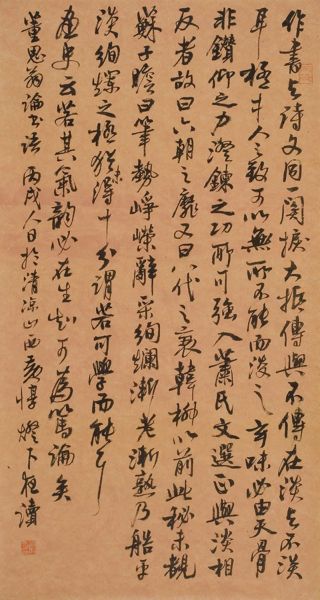 作書与詩文同一関捩大抵傳與不傳在淡与不淡
耳極才人之致可以無所不能而淡之玄味必由天骨
非鑽仰之力澄鍊之功所可強入蕭氏文選正與淡相
反者故曰六朝之靡又曰八代之衰韓柳以前此秘未覩
蘇子瞻曰筆勢崢嶸辭采絢爛漸老漸熟乃造平
淡絢爛之極猶未得十分謂若可學而能耳
畫史云若其氣韻必在生知可為篤論矣
董思翁論書語 丙戌人日於清凉山西 惇燈下夜讀